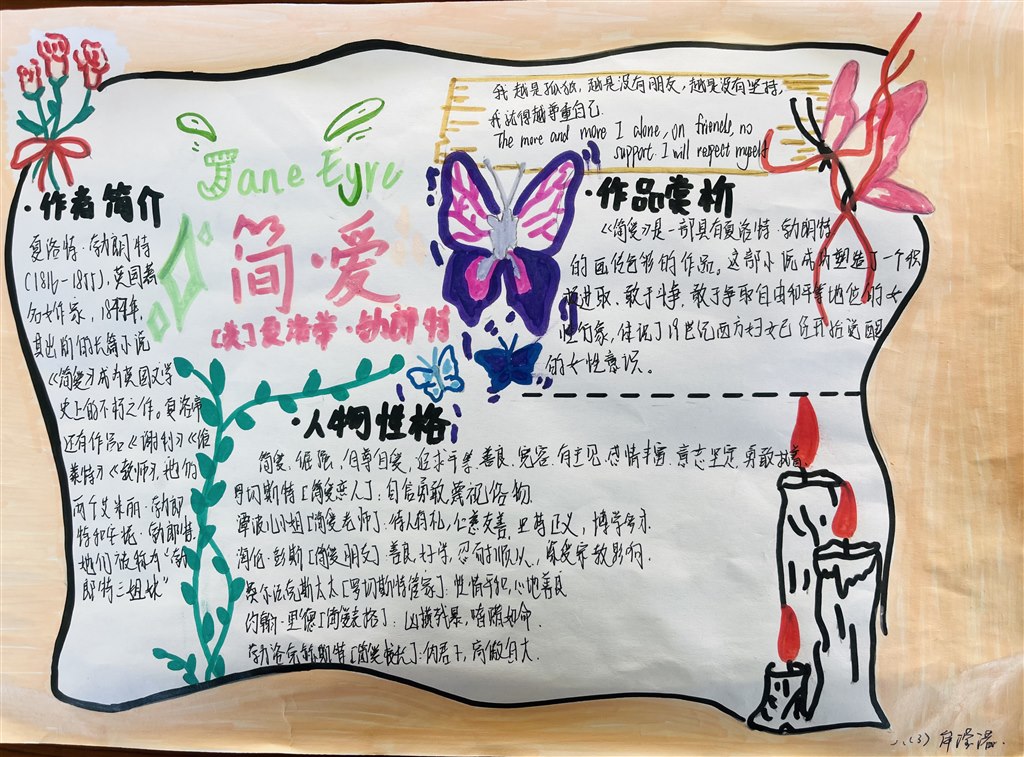 我越是孤独，越是没有朋友，越是没有支持，
我就得越尊重自己.
The more and more I alone, on friends, no
support. I will respect myself
Jane Eyre
简·爱
[英]夏洛蒂·勃朗特
·作者简介
夏洛特·勃朗特
(1816-1855)，英国著
名女作家，1847年，
其出版的长篇小说
《简爱》成为英国文学
史上的不朽之作。夏洛蒂
还有作品《谢利》《维
莱特》《教师》.她们
两个艾米丽·勃朗
特和安妮·勃郎特.
她们被称为“勃
郎特三姐妹”
·作品赏析
《简爱》是一部具有夏洛特·勃朗特
的自传色彩的作品。这部小说成功塑造了一个积
极进取、敢于斗争、敢于争取自由和平等地位的女
性形象，体现了19世纪西方妇女已经开始觉醒
的女性意识。
·人物性格
简爱、倔强，自尊自爱，追求平等、善良、宽容、有主见、感情丰富、意志坚定、勇敢执着
罗切斯特[简爱恋人]：自信勇敢、蔑视俗物
谭波儿小姐[简爱老师]：待人有礼，仁慈友善，正义，博学多才.
海伦·彭斯[简爱朋友]善良、好学，忍耐顺从，深受宗教影响.
菲尔法克斯太太[罗切斯特管家]：性情平和，心地善良
约翰·里德[简爱表哥]：凶横残暴，嗜赌如命.
勃洛克赫斯特[简爱校长]：伪君子，高傲自大.